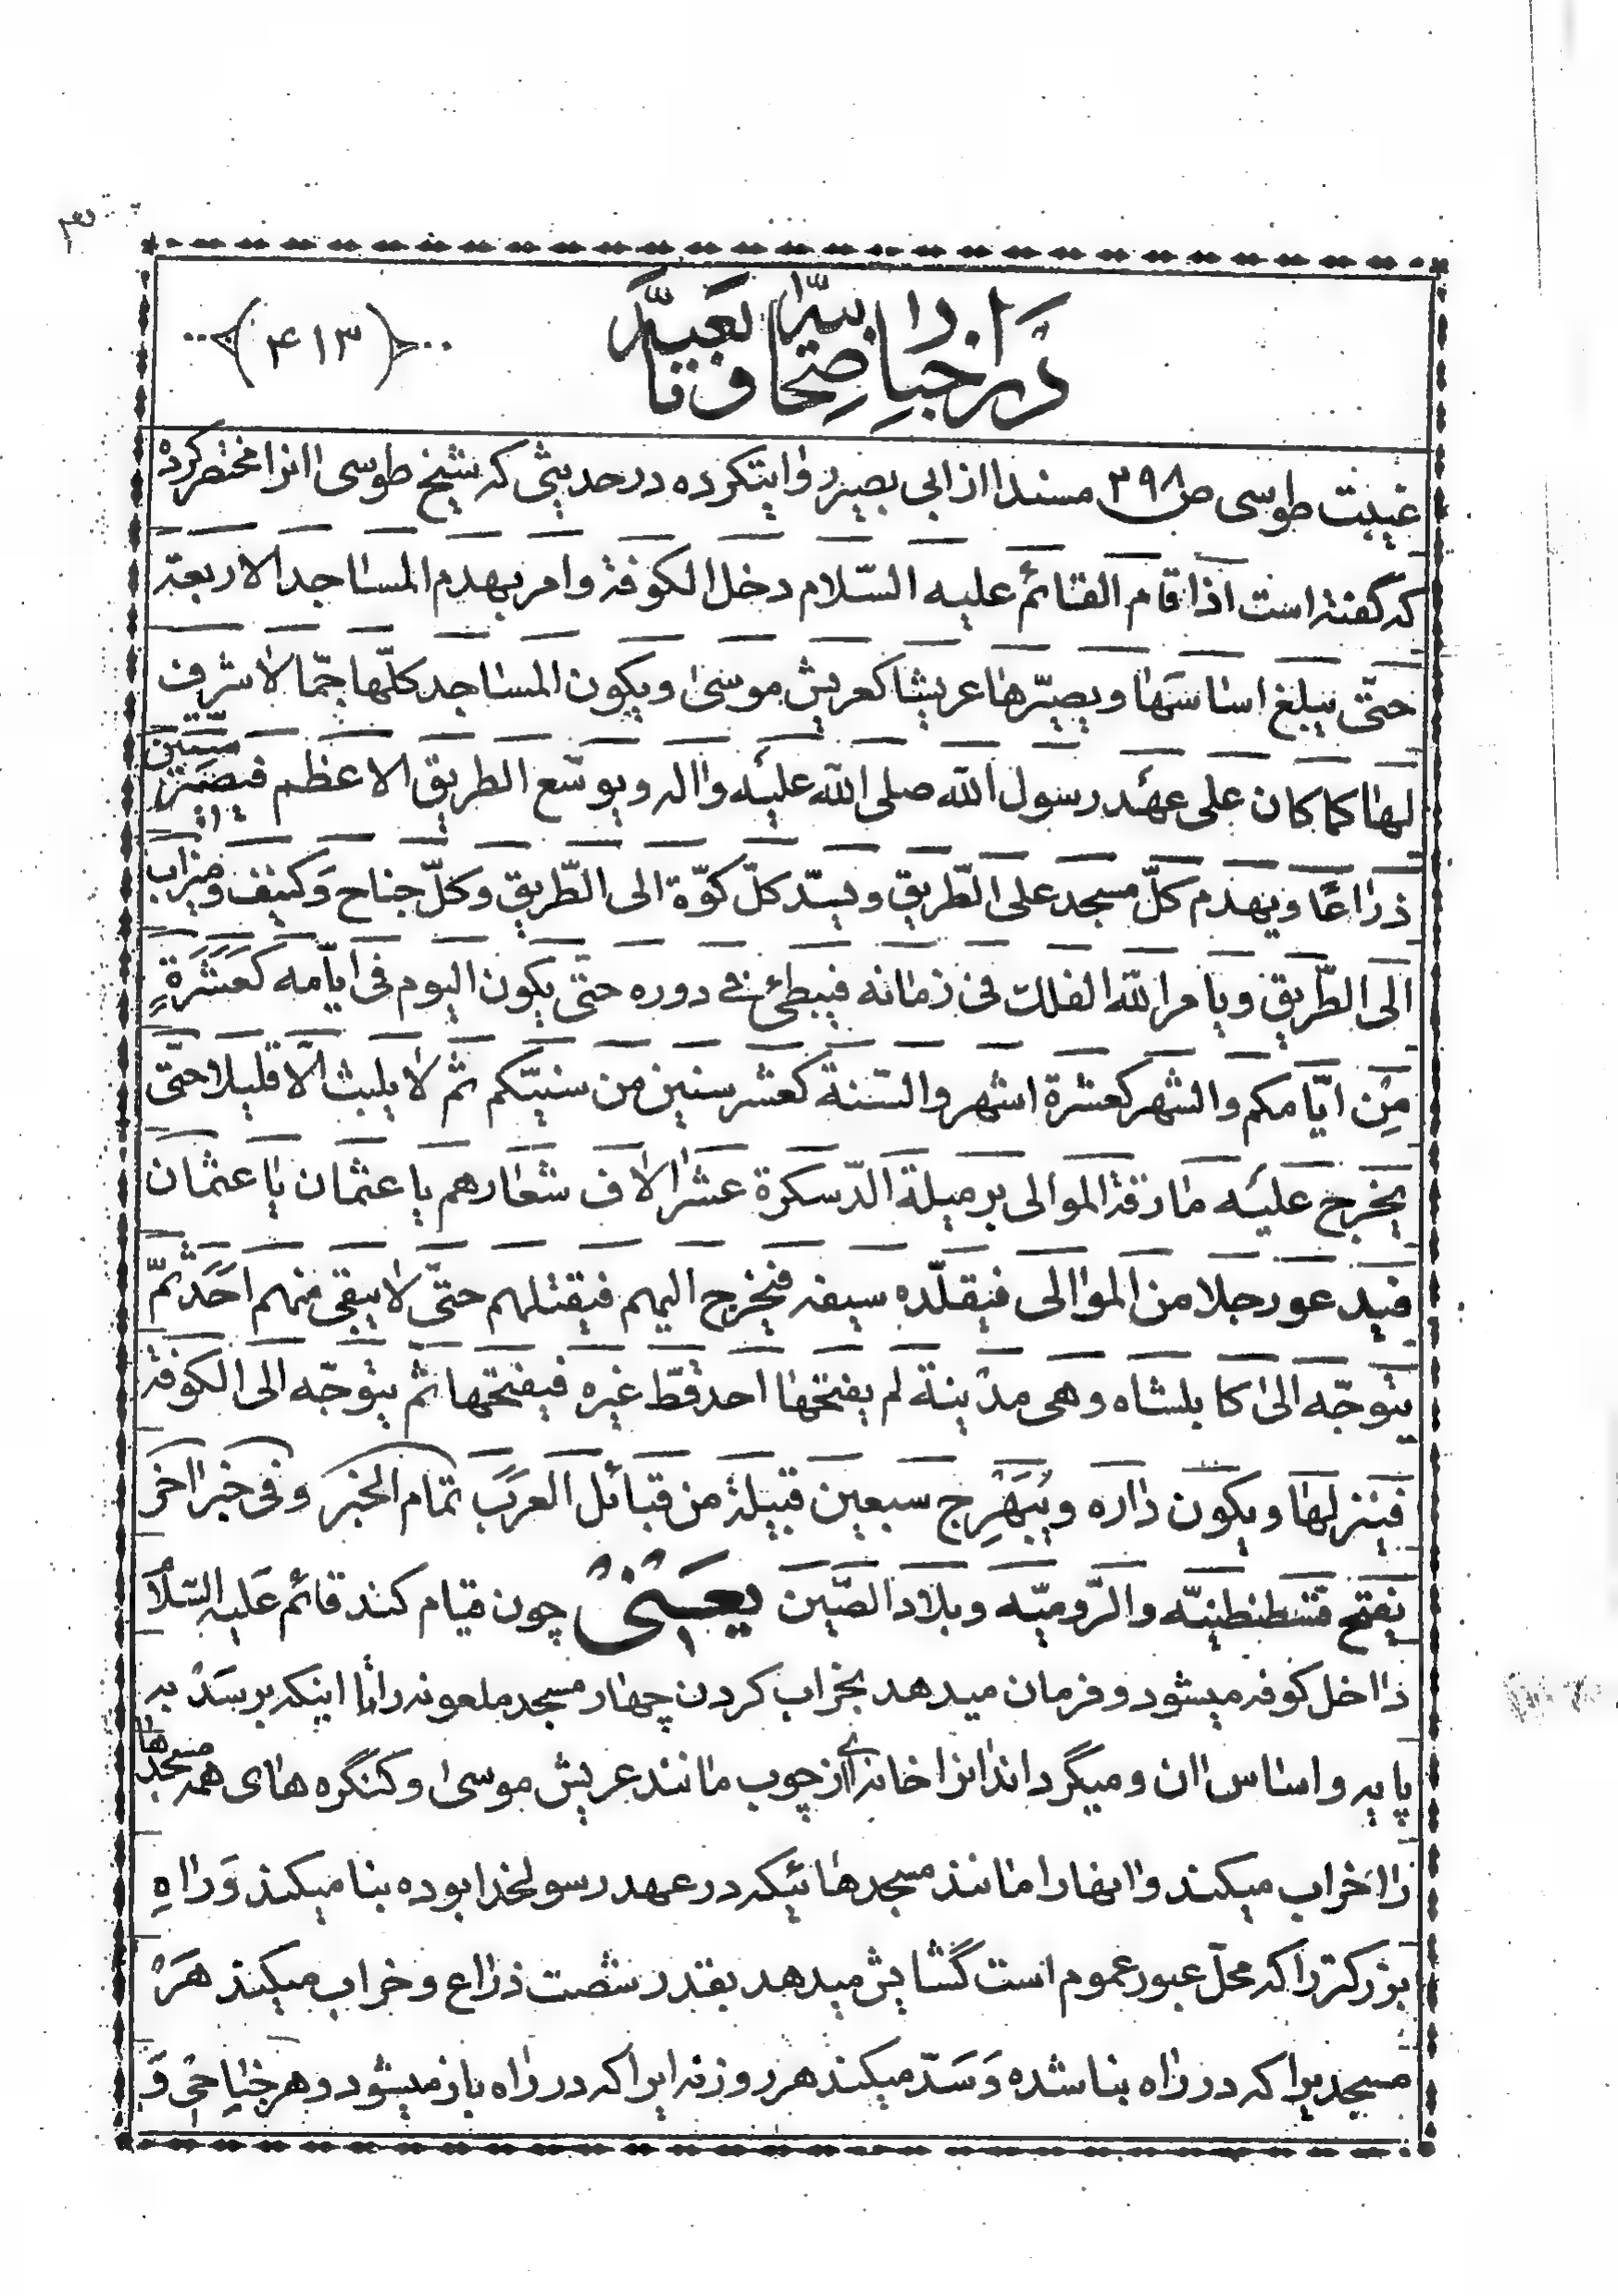 در اخبار صحابه و تابعین
(۴۱۳)
غیبت طوسی ص۳۹۸ مسندا از ابی بصیر روایتکرده در حدیثی که شیخ طوسی انرا مختصر کرده
که گفته است اذا قام القائم علیه السّلام دخل الکوفة وامر بهدم المساجد الاربعة
حتّی یبلغ اساسها ویصیّرها عریشا کعریش موسی ویکون المساجد کلّها جمّا لا شرف
لها کما کان علی عهد رسول الله صلی الله علیه واله ویوسّع الطریق الاعظم فیصیر ستّین
ذراعًا ویهدم کلّ مسجد علی الطّریق ویسدّ کلّ کوّة الی الطّریق وکلّ جناح وَکنیف ومیزاب
الی الطّریق ویامر الله الفلک فی زمانه فیبطئ فی دوره حتّی یکون الیوم فی ایّامه کعَشَرَةٍ
مِن ایّامکم والشهر کعشرة اشهر والسّنة کعشر سنین من سنیّکم ثم لا یلبث الّا قلیلا حتّی
یخرج علیه مارقة الموالی برمیلة الدّسکرة عشر الاف شعارهم یا عثمان یا عثمان
فیدعو رجلا من الموالی فیقلّده سیفه فیخرج الیهم فیقتلهم حتّی لا یبقی منهم احَد ثمّ
یتوجّه الی کابلشاه وهی مدینة لم یفتحها احد قطّ غیره فیفتحها ثم یتوجّه الی الکوفة
فینزلها ویکون داره ویُبَهرِج سبعین قبیلة من قبائل العرَب تمام الخبر وفی خبر اخر
یفتح قسطنطینیّه والرّومیّه وبلاد الصّین یعنی چون قیام کند قائم عَلیه السّلام
داخل کوفه میشود و فرمان میدهد بخراب کردن چهار مسجد ملعونه را تا اینکه برسَد به
پایه و اساس ان و میگرداند انرا خانه ای از چوب مانند عریش موسی و کنگره های همه مسجدها
را خراب میکند و انها را مانند مسجدهائیکه در عهد رسولخدا بوده بنا میکند وَ راهِ
بزرکتر را که محلّ عبور عموم است گشایش میدهد بقدر شصت ذراع و خراب میکند هَر
مسجدیرا که در راه بنا شده وَ سَدّ میکند هر روزنه ایرا که در راه باز میشود و هر جناحی وَ